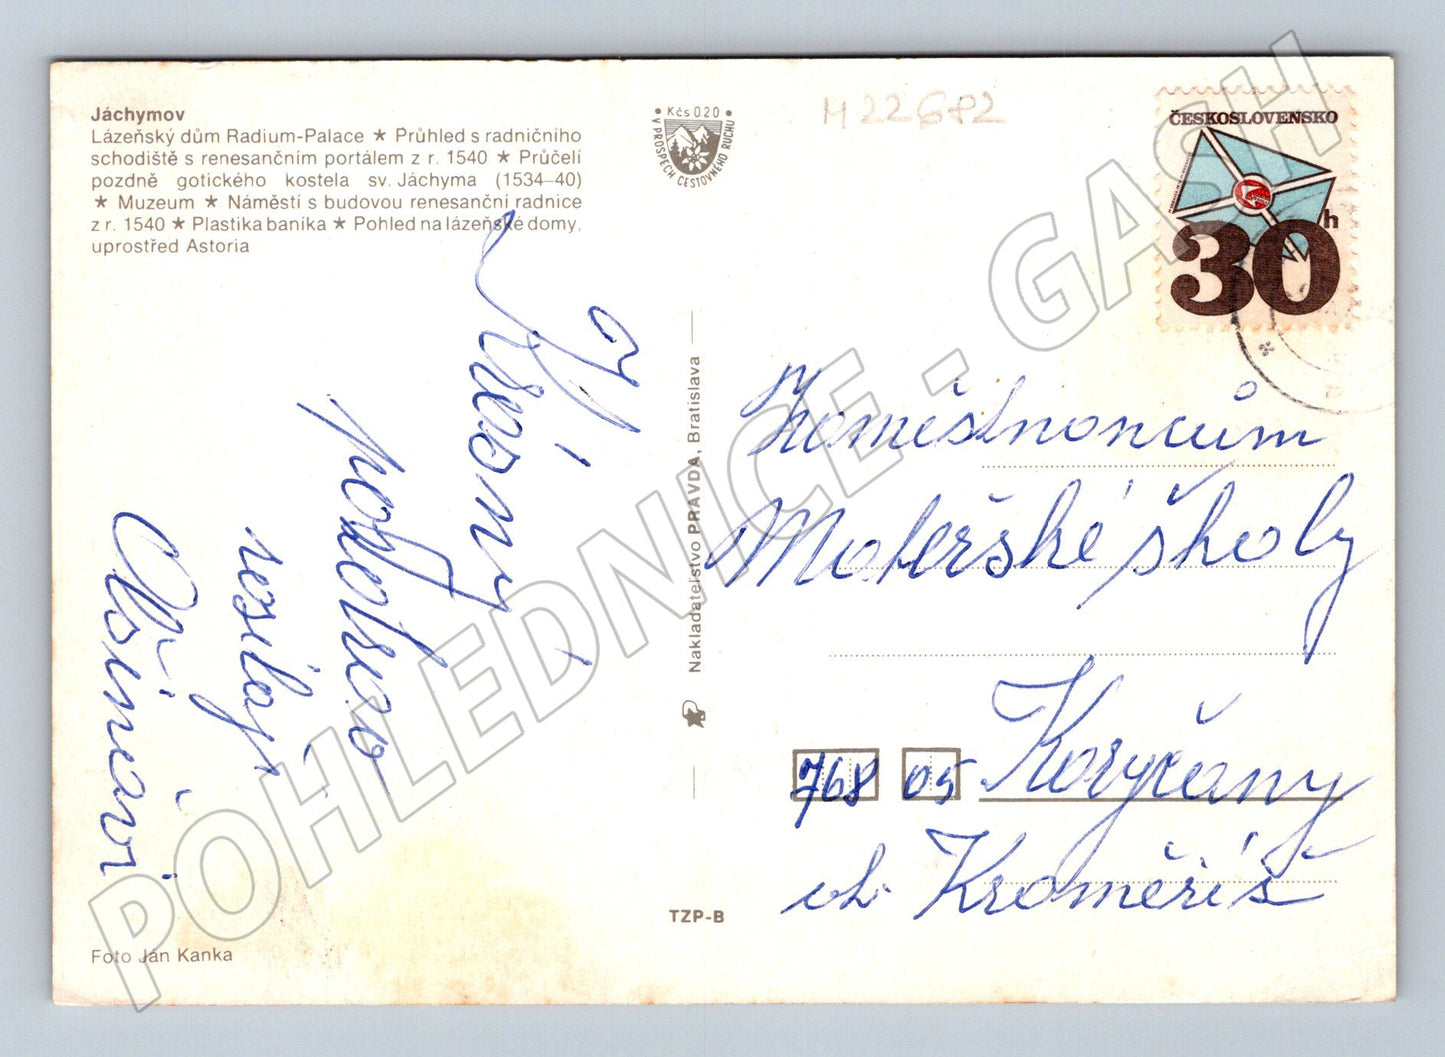 Jáchymov
Lázeňský dům Radium-Palace ★ Průhled s radničního
schodiště s renesančním portálem z r. 1540 ★ Průčelí
pozdně gotického kostela sv. Jáchyma (1534–40)
★ Muzeum ★ Náměstí s budovou renesanční radnice
z r. 1540 ★ Plastika baníka ★ Pohled na lázeňské domy,
uprostřed Astoria
Krásný
pozdrav
Foto Ján Kanka
Kčs 0.20
V PROSPĚCH CESTOVNÉHO RUCHU
M 22682
Nakladatelstvo PRAVDA, Bratislava
TZP-B
ČESKOSLOVENSKO
30h
Zaměstnancům
Mateřské školy
768 05 Koryčany
ok. Kroměříž
POHLEDNICE - GASH